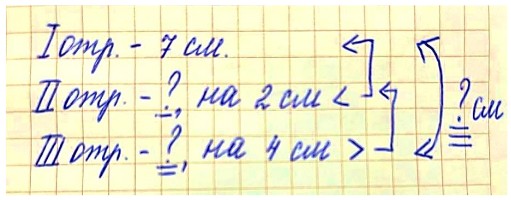 I отр. - 7 см.
II отр. - ?, на 2 см <
III отр. - ?, на 4 см >
? см